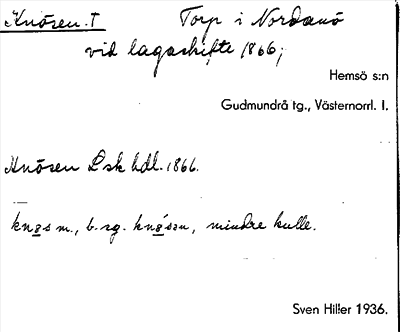 Knösen. † Torp i Nordanö
vid lagaskifte 1866;
Hemsö s:n
Gudmundrå tg., Västernorrl. l.
Knösen Lsk hdl. 1866.
knøs m., b. sg. knø̀sən, mindre kulle.
Sven Hiller 1936.